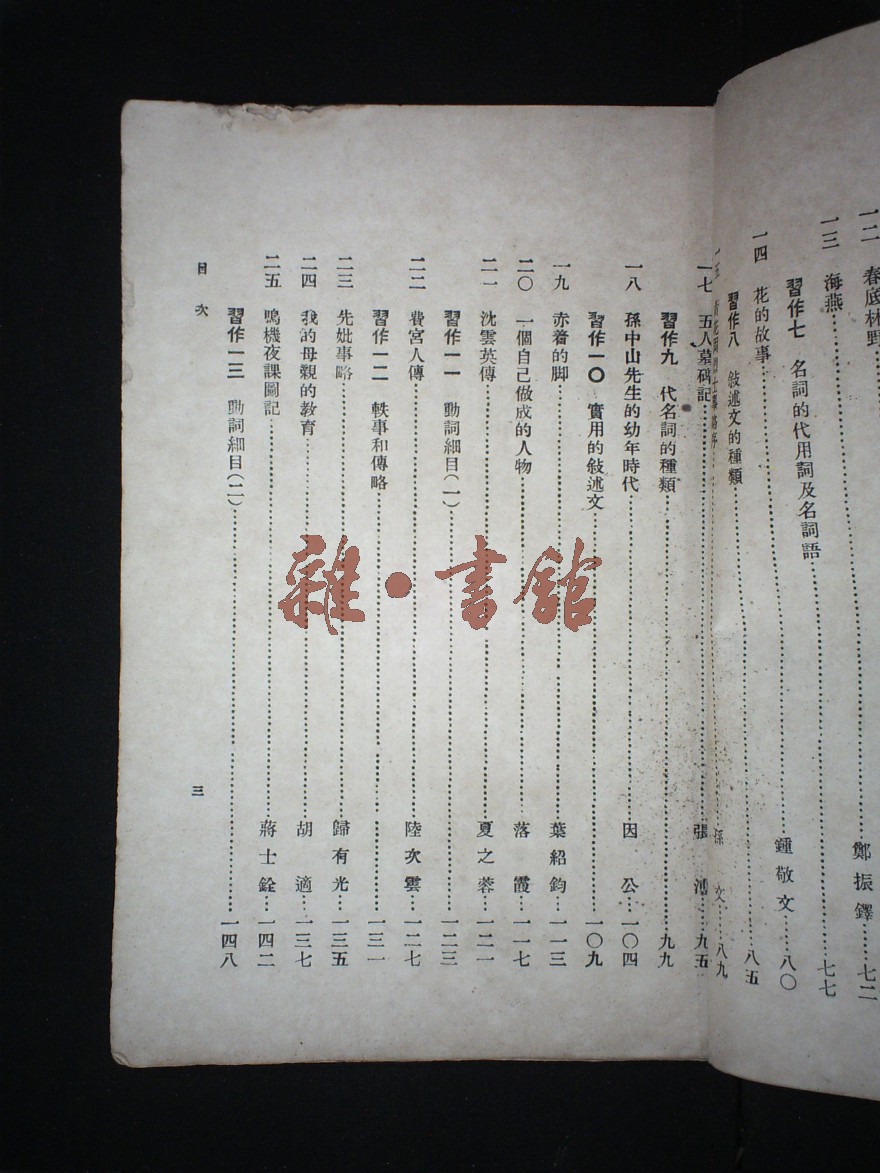 一二 春底林野
一三 海燕……鄭振鐸……七二
習作七 名詞的代用詞及名詞語……七七
一四 花的故事……鍾敬文……八〇
習作八 敍述文的種類……八五
孫文……八九
一七 五人墓碑記……張溥……九五
習作九 代名詞的種類……九九
一八 孫中山先生的幼年時代……因公……一〇四
習作一〇 實用的敍述文……一〇九
一九 赤着的脚……葉紹鈞……一一三
二〇 一個自己做成的人物……落霞……一一七
二一 沈雲英傳……夏之蓉……一二一
習作一一 動詞細目(一)……一二三
二二 費宮人傳……陸次雲……一二七
習作一二 軼事和傳略……一三一
二三 先妣事略……歸有光……一三五
二四 我的母親的教育……胡適……一三七
二五 鳴機夜課圖記……蔣士銓……一四二
習作一三 動詞細目(二)……一四八
目次 三
雜·書館